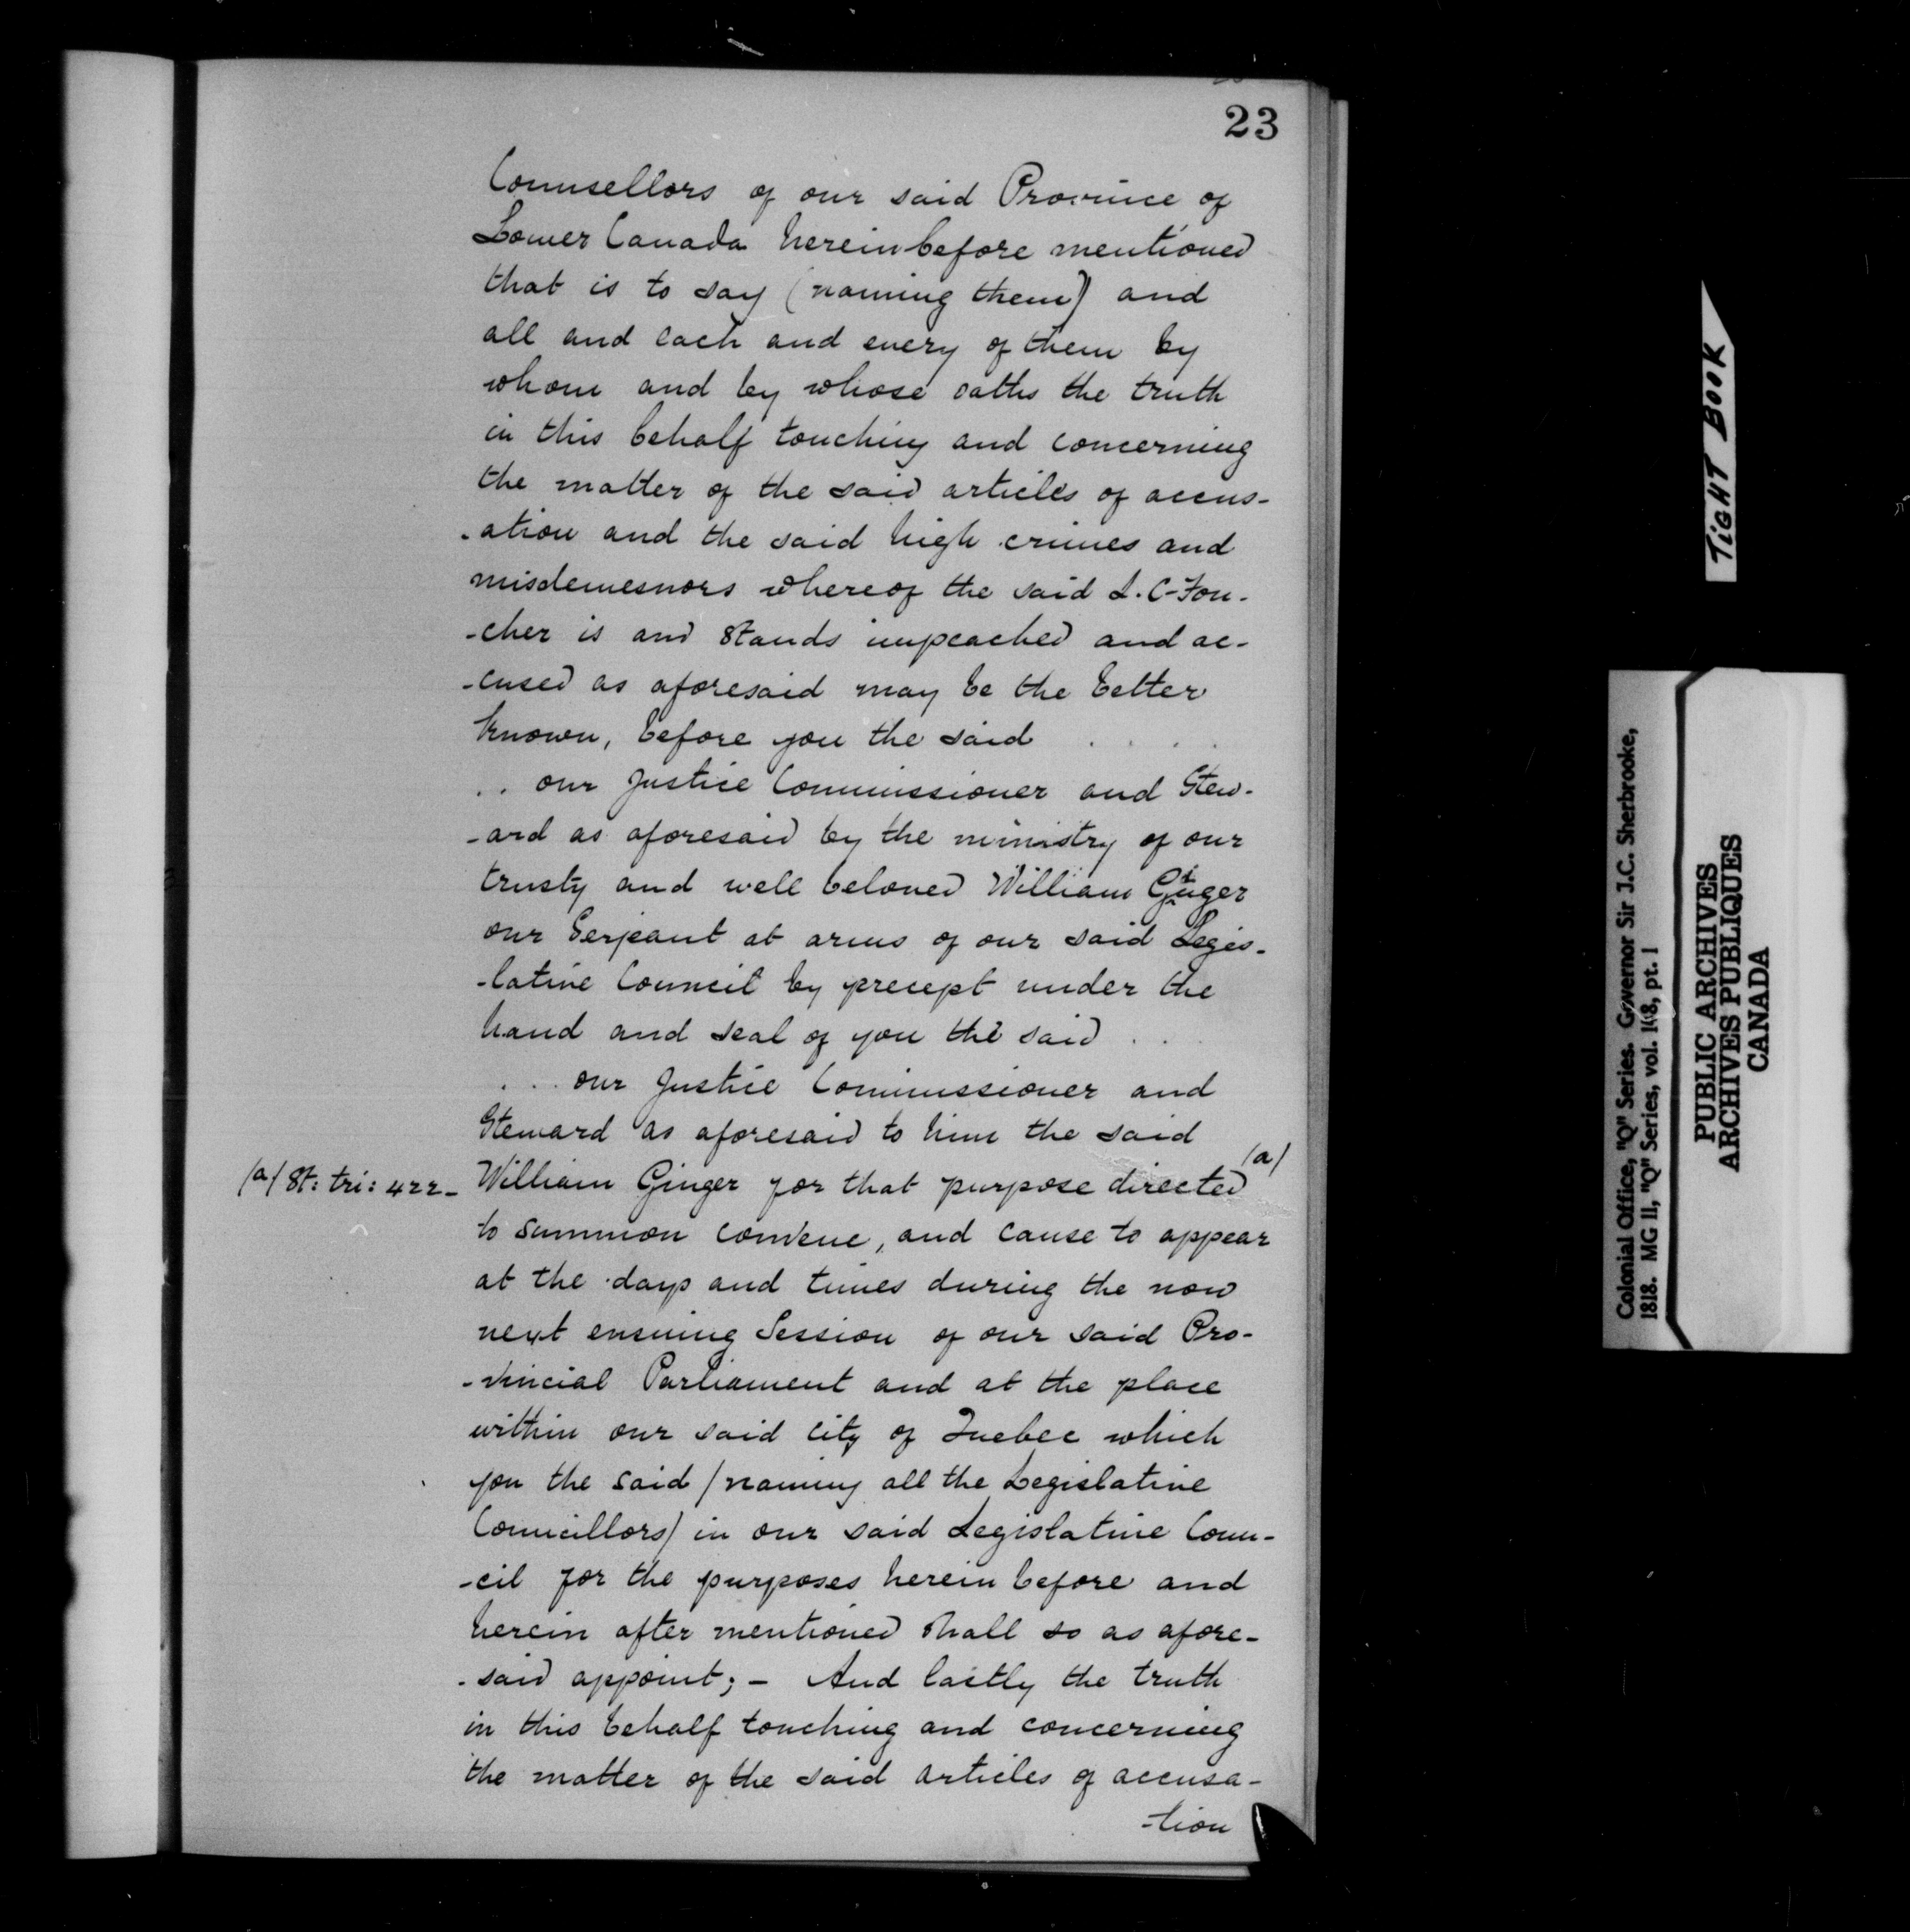 23
Counsellors of our said Province of
Lower Canada hereinbefore mentioned
that is to say (naming them) and
all and each and every of them by
whom and by whose oaths the truth
in this behalf touching and concerning
the matter of the said articles of accus-
-ation and the said high crimes and
misdemesnors whereof the said L. C. Fou-
-cher is and stands impeached and ac-
-cused as aforesaid may be the better
known, before you the said . . . .
. . our Justice Commissioner and Stew-
-ard as aforesaid by the ministry of our
trusty and well beloved William Ginger
our Serjeant at arms of our said Legis-
-lative Council by precept under the
hand and seal of you the said . .
. . . our Justice Commissioner and
Steward as aforesaid to him the said
(a) St: tri: 422- William Ginger for that purpose directed (a)
to summon convene, and cause to appear
at the days and times during the now
next ensuing Session of our said Pro-
-vincial Parliament and at the place
within our said city of Quebec which
you the said (naming all the Legislative
Councillors) in our said Legislative Coun-
-cil for the purposes herein before and
herein after mentioned shall so as afore-
-said appoint; - And lastly the truth
in this behalf touching and concerning
the matter of the said articles of accusa-
-tion
TIGHT BOOK
Colonial Office, "Q" Series. Governor Sir J.C. Sherbrooke,
1818. MG 11, "Q" Series, vol. 148, pt. 1
PUBLIC ARCHIVES
ARCHIVES PUBLIQUES
CANADA